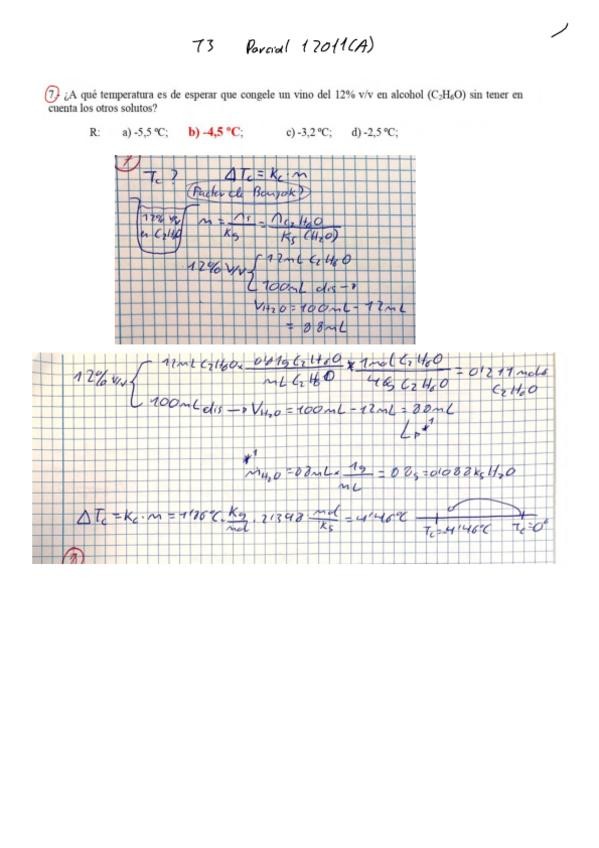 T3 Parcial 1 2011(A)
7.- ¿A qué temperatura es de esperar que congele un vino del 12% v/v en alcohol (C₂H₆O) sin tener en
cuenta los otros solutos?
R: a) -5,5 ºC; b) -4,5 ºC; c) -3,2 ºC; d) -2,5 ºC;
7
Tc ? ΔTc = Kc · m
12% v/v m = = nC₂H₆O / Kg (H₂O)
en C₂H₆O
12% v/v { 12mL C₂H₆O
100mL dis →
VH₂O = 100mL - 12mL
= 88mL
12% v/v { 12mL C₂H₆O × C₂H₆O / mL C₂H₆O × 1mol C₂H₆O / 46g C₂H₆O = 0'211 mols C₂H₆O
100mL dis → VH₂O = 100mL - 12mL = 88mL
*1
*1
mH₂O = 88mL × 1g / mL = 88g = 0'088 kg H₂O
ΔTc = Kc · m = 1'86ºC · Kg / mol · 2'398 mol / kg = 4'46ºC Tc=-4'46ºC Tc=0º
8